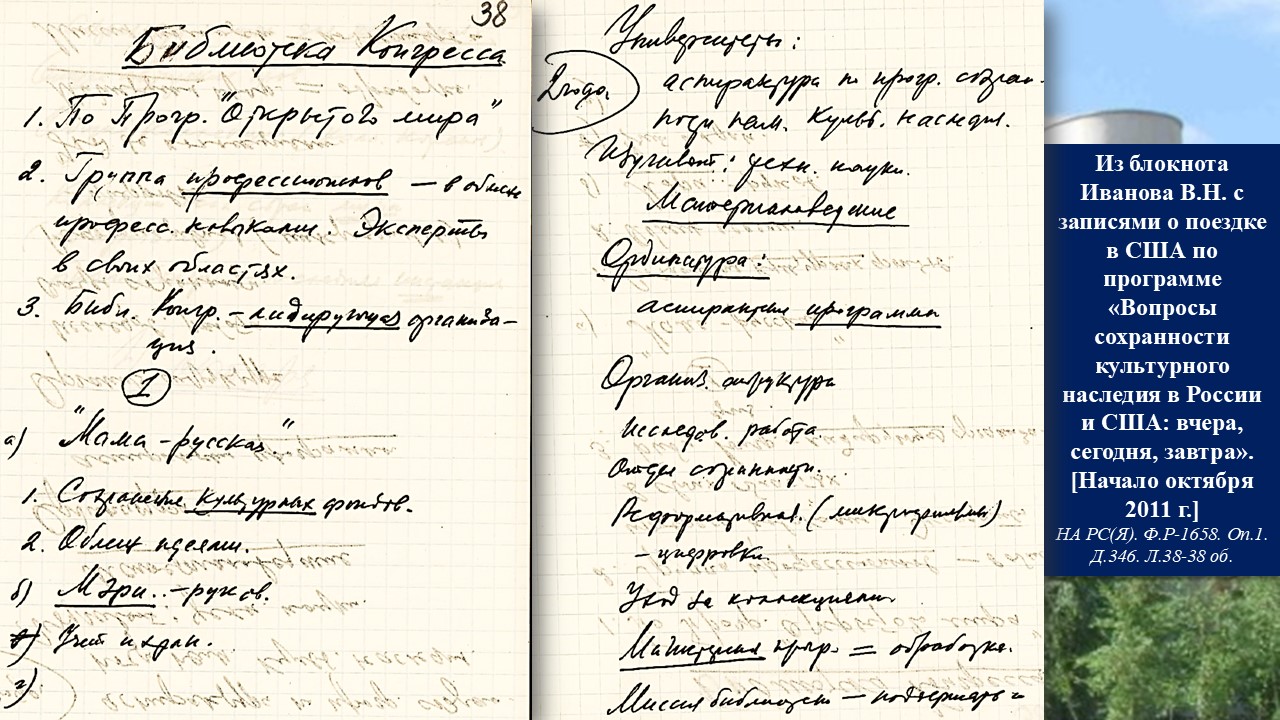 38
Библиотека Конгресса
1. По Прогр. "Открытого мира"
2. Группа профессионалов — в области
професс. навыками. Эксперты
в своих областях.
3. Библ. Конгр. – лидирующая организа-
ция.
1
а) "Мама – русская"
1. Сохранения культурных фондов.
2. Обмен идеями.
б) Мэри.. – руков.
в) Учет и хран.
г)
Университеты:
2 года.
аспирантура по прогр. сохран.
пам. культ. наследия.
Изучают: техн. науки.
Материаловедение
Ординатура:
программы
Организ. структура
Исследов. работа
сохранности.
(микрофильмы)
– цифровка.
Уход за коллекциями.
прогр. = обработка.
Миссия библиотеки —
Из блокнота
Иванова В.Н. с
записями о поездке
в США по
программе
«Вопросы
сохранности
культурного
наследия в России
и США: вчера,
сегодня, завтра».
[Начало октября
2011 г.]
НА РС(Я). Ф.Р-1658. Оп.1.
Д.346. Л.38-38 об.